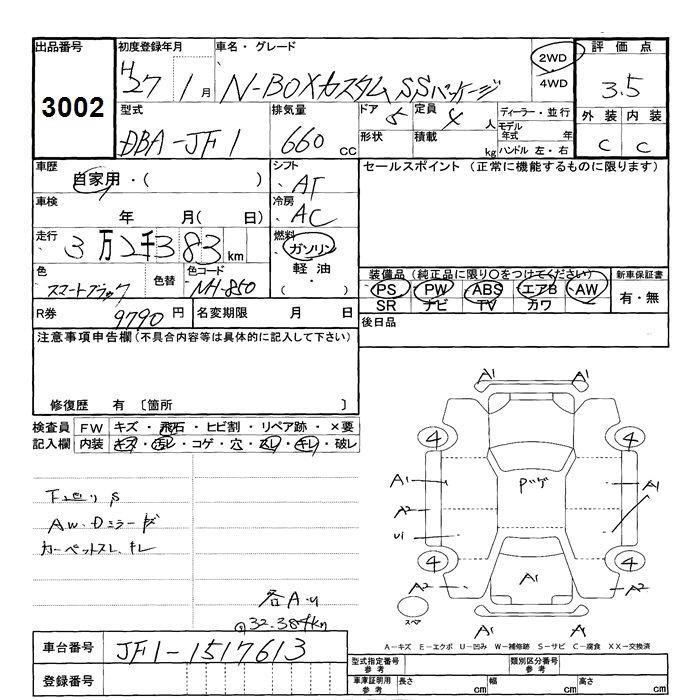 出品番号
3002
初度登録年月
H27 1月
車名・グレード
N-BOXカスタム SSパッケージ
2WD
4WD
評価点
3.5
外装 内装
C C
型式
DBA-JF1
排気量
660 cc
ドア 5
形状
定員 4 人
積載 kg
ディーラー・並行
モデル年式 年
ハンドル 左・右
車歴
自家用・( )
シフト
AT
セールスポイント (正常に機能するものに限ります)
車検
年 月( 日)
冷房
AC
走行
3万2千383 km
燃料
ガソリン
軽油
( ・ )
色
スマートブラック
色替
色コード
NH-850
装備品(純正品に限り○をつけてください)
PS PW ABS エアB AW
SR ナビ TV カワ ー
新車保証書
有・無
R券
9790円
名変期限 月 日
後日品
注意事項申告欄(不具合内容等は具体的に記入して下さい)
修復歴 有 〔箇所 〕
検査員記入欄
FW キズ・飛石・ヒビ割・リペア跡・×要
内装 キズ・汚レ・コゲ・穴・スレ・キレ・破レ
AW、Dミラーキズ
カーペットスレ、キレ
各A.U
32.384km
A1 A1
4 4
A1 Pゲ A1
A2
U1
4 4
A2 A1 A2
スペア
A1 A1
A-キズ E-エクボ U-凹み W-補修跡 S-サビ C-腐食 XX-交換済
車台番号
JF1-1517613
登録番号
型式指定番号 参考
類別区分番号 参考
車庫証明用 参考
長さ cm 幅 cm 高さ cm